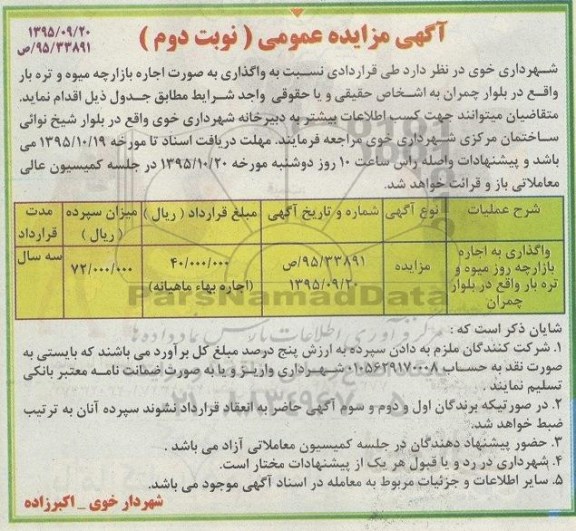 آگهی مزایده عمومی ( نوبت دوم )
۱۳۹۵/۰۹/۲۰
۹۵/۳۳۸۹۱/ص
شهرداری خوی در نظر دارد طی قراردادی نسبت به واگذاری به صورت اجاره بازارچه میوه و تره بار
واقع در بلوار چمران به اشخاص حقیقی و یا حقوقی واجد شرایط مطابق جدول ذیل اقدام نماید.
متقاضیان میتوانند جهت کسب اطلاعات بیشتر به دبیرخانه شهرداری خوی واقع در بلوار شیخ نوائی
ساختمان مرکزی شهرداری خوی مراجعه فرمایند. مهلت دریافت اسناد تا مورخه ۱۳۹۵/۱۰/۱۹ می
باشد و پیشنهادات واصله راس ساعت ۱۰ روز دوشنبه مورخه ۱۳۹۵/۱۰/۲۰ در جلسه کمیسیون عالی
معاملاتی باز و قرائت خواهد شد.
شرح عملیات نوع آگهی شماره و تاریخ آگهی مبلغ قرارداد ( ریال ) میزان سپرده ( ریال ) مدت قرارداد
واگذاری به اجاره بازارچه روز میوه و تره بار واقع در بلوار چمران مزایده ۹۵/۳۳۸۹۱/ص ۱۳۹۵/۰۹/۲۰ ۴۰/۰۰۰/۰۰۰ (اجاره بهاء ماهیانه) ۷۲/۰۰۰/۰۰۰ سه سال
ParsNamadData
شایان ذکر است که :
۱. شرکت کنندگان ملزم به دادن سپرده به ارزش پنج درصد مبلغ کل برآورد می باشند که بایستی به
صورت نقد به حساب ۰۱۰۵۶۲۹۱۷۰۰۰۸ شهرداری واریز و یا به صورت ضمانت نامه معتبر بانکی
تسلیم نمایند .
۲. در صورتیکه برندگان اول و دوم و سوم آگهی حاضر به انعقاد قرارداد نشوند سپرده آنان به ترتیب
ضبط خواهد شد.
۳. حضور پیشنهاد دهندگان در جلسه کمیسیون معاملاتی آزاد می باشد .
۴. شهرداری در رد و یا قبول هر یک از پیشنهادات مختار است.
۵. سایر اطلاعات و جزئیات مربوط به معامله در اسناد آگهی موجود می باشد.
شهردار خوی _ اکبرزاده